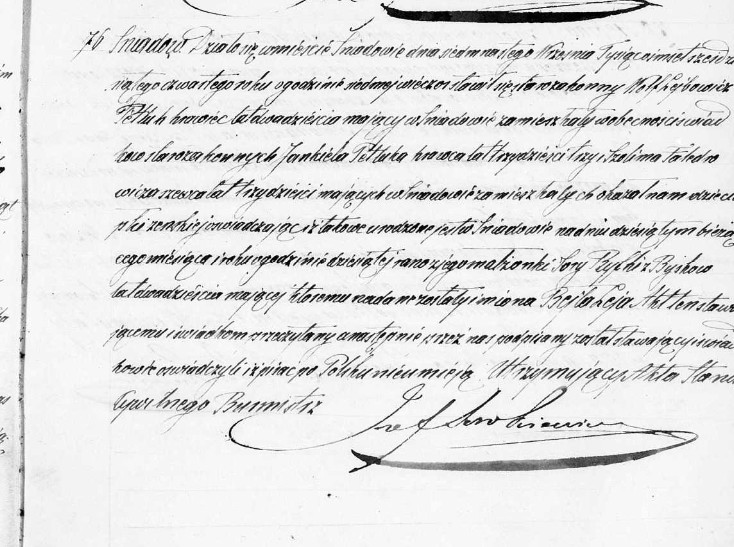 76 Sniadowo Działo się w mieście Śniadowie dnia siedmnastego Września Tysiąc ośmset sześćdzie
siątego czwartego roku o godzinie siedmej wieczor stawił się starozakonny Wolf Lejbowicz
Petluk krawiec lat dwadzieścia mający w Śniadowie zamieszkały w obecności świad
kow starozakonnych Jankiela Petluka krawca lat trzydzieści trzy i Szolima
wicza szewca lat trzydzieści mających w Śniadowie zamieszkałych okazał nam dziecie
płci żeńskiej oswiadczając iż takowe urodzone jest w Śniadowie na dniu dziesiątym bieżą
cego miesiąca i roku o godzinie dziesiątej rano z jego małżonki Sory Ryfki z
lat dwadzieścia mającej ktoremu nadane zostały imiona Bejla Leja Akt ten stawa
jącemu i swiadkom przeczytany a następnie przez nas podpisany został stawający i swiad
kowie oswiadczyli iż pisać po Polsku nieumieją Utrzymujący Akta Stanu
Cywilnego Burmistrz
Jozef